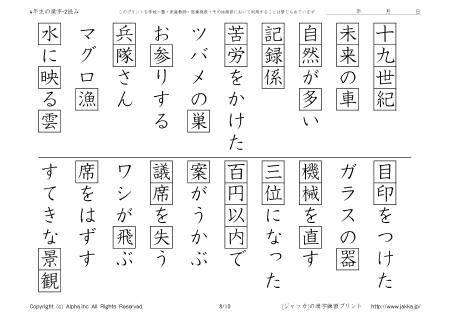 4年生の漢字-2読み
このプリントを学校・塾・家庭教師・医療機関・その他施設において利用することは禁じられています
年 月 日
十九世紀
未来の車
自然が多い
記録係
苦労をかけた
ツバメの巣
お参りする
兵隊さん
マグロ漁
水に映る雲
目印をつけた
ガラスの器
機械を直す
三位になった
百円以内で
案がうかぶ
議席を失う
ワシが飛ぶ
席をはずす
すてきな景観
Copyright (c) Alpha.Inc All Rights Reserved.
8/10
[ジャッカ]の漢字練習プリント
http://www.jakka.jp/